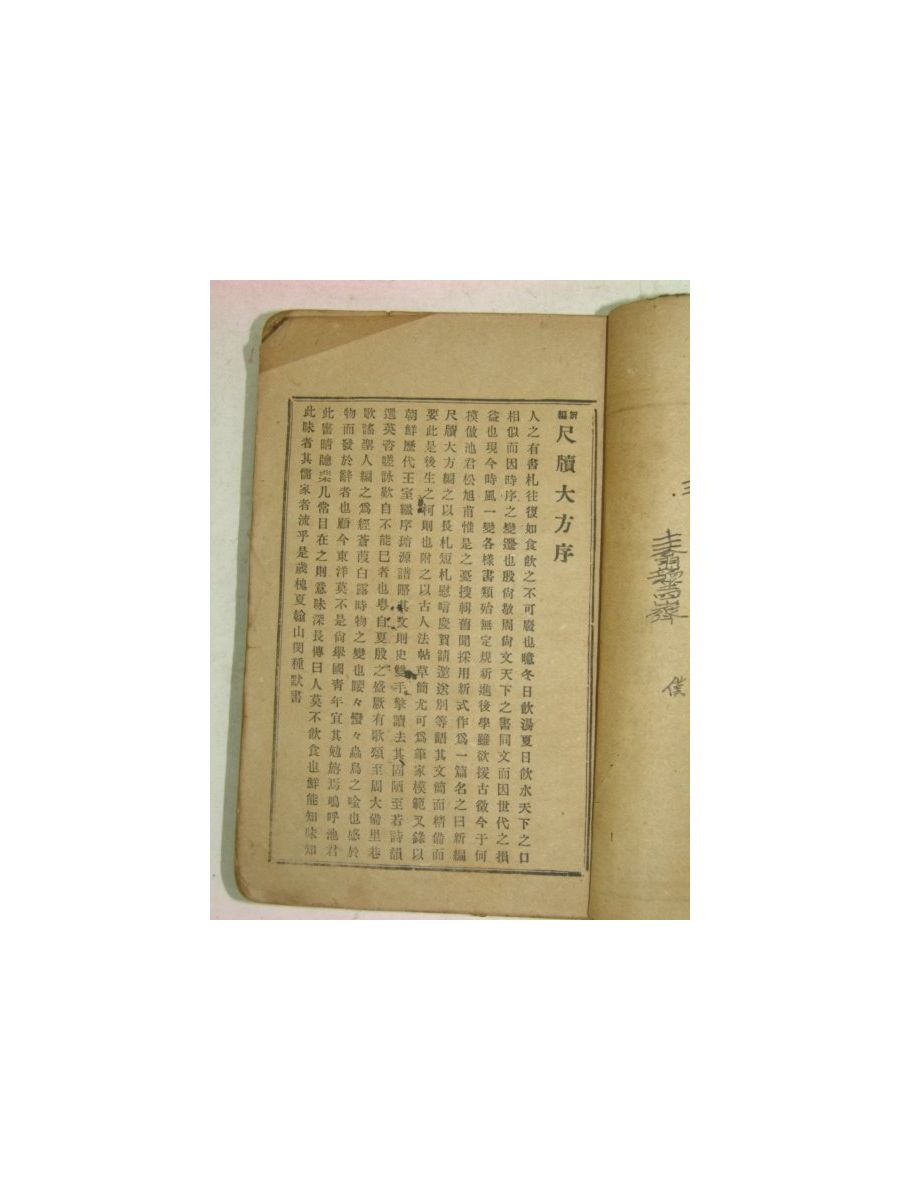 新編尺牘大方序
人之有書札往復如食飮之不可廢也噫冬日飮湯夏日飮水天下之口
相似而因時序之變遷也殷尙敬周尙文天下之書同文而因世代之損
益也現今時風一變各樣書類殆無定規新進後學雖欲援古徵今于何
模倣池君松旭甫惟是之憂搜輯舊聞採用新式作爲一篇名之曰新編
尺牘大方編之以長札短札慰唁慶賀請邀送別等語其文簡而精備而
要此是後生之柯則也附之以古人法帖草簡尤可爲筆家模範又錄以
朝鮮歷代王室繼序璿源譜略其文則史雙手擎讀去其固陋至若詩韻
選英咨嗟詠歎自不能已者也粤自夏殷之盛厥有歌頌至周大備里巷
歌謠聖人編之爲經蒼葭白露時物之變也喓々蠻々蟲鳥之唫也感於
物而發於辭者也顧今東洋莫不是尙學國靑年宜其勉旃焉嗚呼池君
此書晴牕棐几常目在之則意味深長傳曰人莫不飮食也鮮能知味知
此味者其儒家者流乎是歲槐夏翰山閔種默書
僕